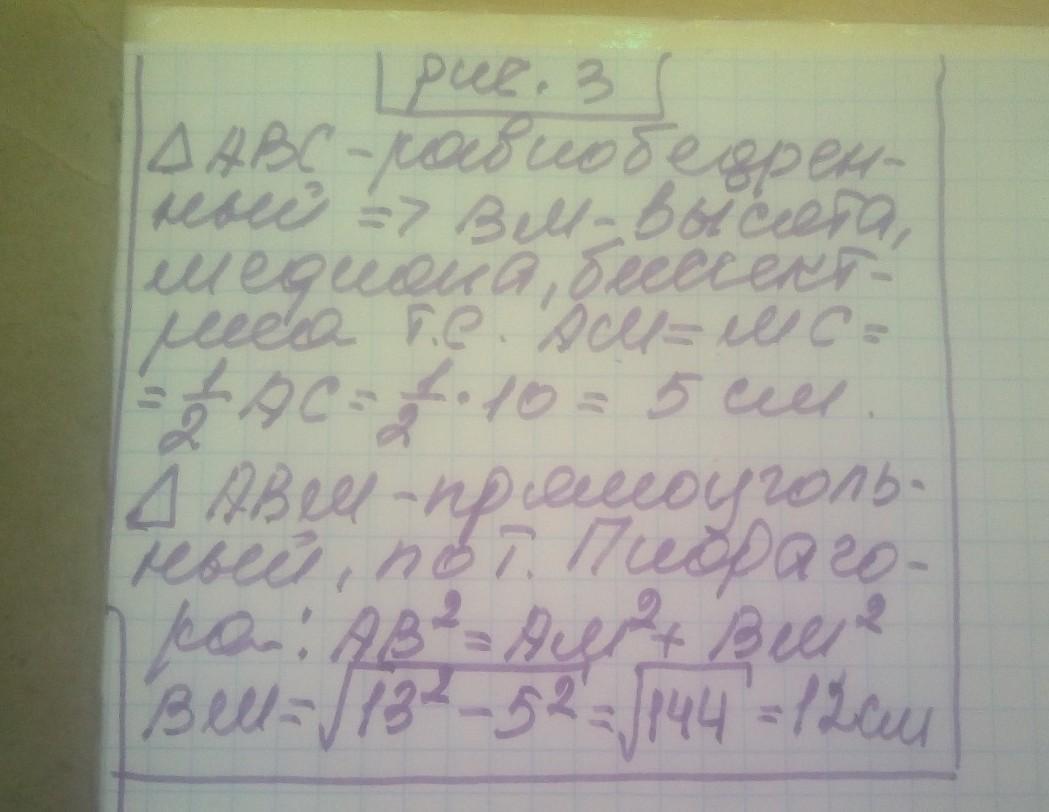 рис. 3
△ABC - равнобедрен-
ный => BM - высота,
медиана, биссект-
риса т.е. AM = MC =
= 1/2 AC = 1/2 · 10 = 5 см.
△ ABM - прямоуголь-
ный, по т. Пифаго-
ра: AB² = AM² + BM²
BM = √13² - 5² = √144 = 12см